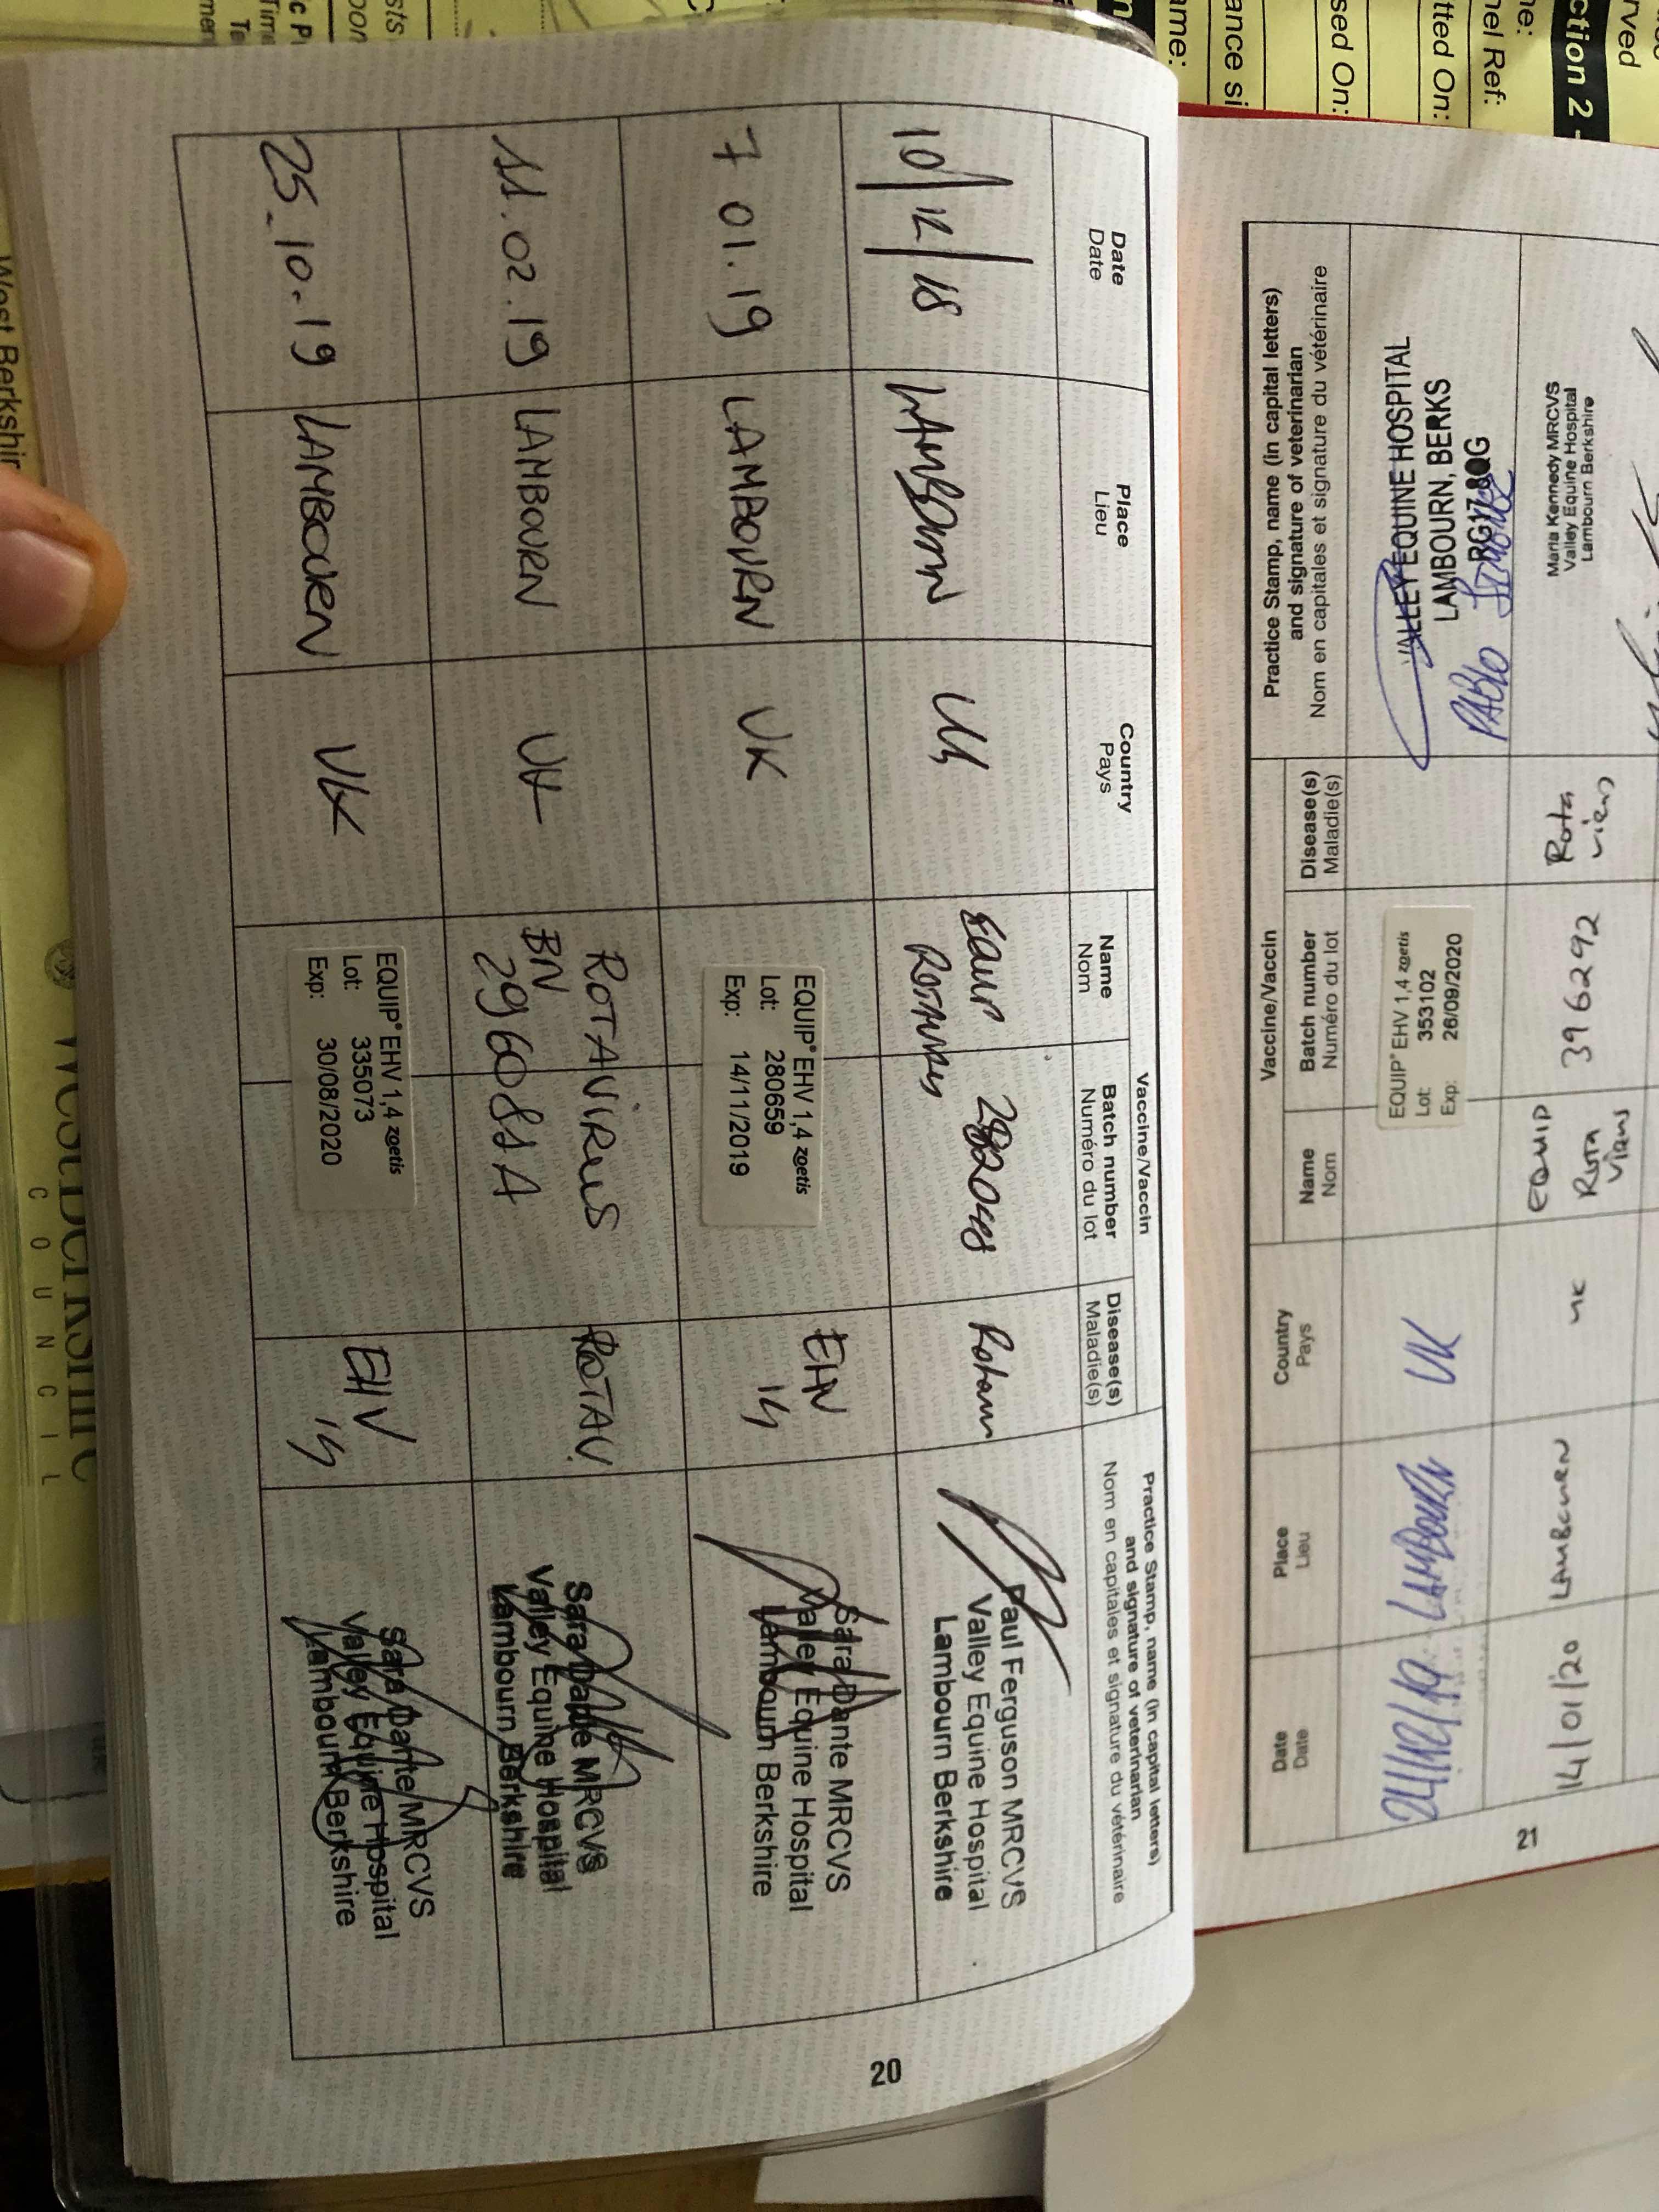 20
Date
Date
Place
Lieu
Country
Pays
Vaccine/Vaccin
Name
Nom
Batch number
Numéro du lot
Disease(s)
Maladie(s)
Practice Stamp, name (in capital letters)
and signature of veterinarian
Nom en capitales et signature du vétérinaire
10/12/18
LAMBOURN
UK
Equip
Rotavirus
Paul Ferguson MRCVS
Valley Equine Hospital
Lambourn Berkshire
7 01.19
LAMBOURN
UK
EQUIP® EHV 1,4 zoetis
Lot: 280659
Exp: 14/11/2019
Sara Dante MRCVS
Valley Equine Hospital
Lambourn Berkshire
11.02.19
LAMBOURN
UK
ROTAVIRUS
BN
296081A
ROTAV.
Sara Dante MRCVS
Valley Equine Hospital
Lambourn Berkshire
25.10.19
LAMBOURN
UK
EQUIP® EHV 1,4 zoetis
Lot: 335073
Exp: 30/08/2020
EHV
Sara Dante MRCVS
Valley Equine Hospital
Lambourn Berkshire
21
Date
Date
Place
Lieu
Country
Pays
Vaccine/Vaccin
Name
Nom
Batch number
Numéro du lot
Disease(s)
Maladie(s)
Practice Stamp, name (in capital letters)
and signature of veterinarian
Nom en capitales et signature du vétérinaire
LAMBOURN
UK
EQUIP® EHV 1,4 zoetis
Lot: 353102
Exp: 26/09/2020
VALLEY EQUINE HOSPITAL
LAMBOURN, BERKS
RG17 8QG
PABLO
14/01/20
LAMBOURN
UK
EQUIP
Rota
virus
396292
Rota
virus
Maria Kennedy MRCVS
Valley Equine Hospital
Lambourn Berkshire
West Berkshire
COUNCIL
ction 2 -
nel Ref:
tted On:
sed On:
ance si
ame:
rved